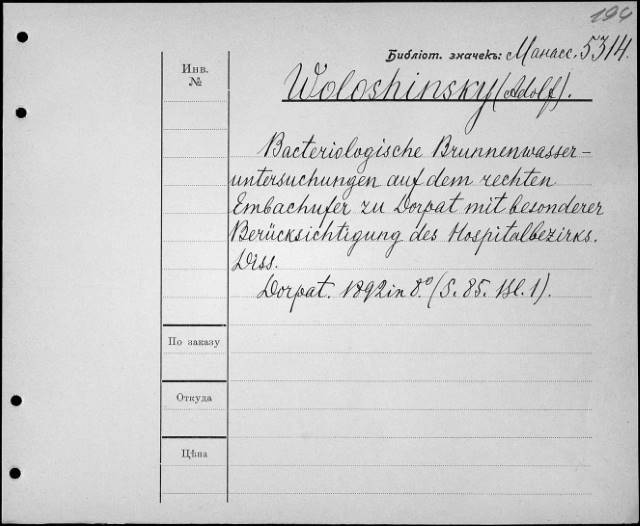 194
Библіот. значекъ: Манасс. 5314.
Инв.
№
Woloshinsky (Adolf).
Bacteriologische Brunnenwasser-
untersuchungen auf dem rechten
Embachufer zu Dorpat mit besonderer
Berücksichtigung des Hospitalbezirks.
Diss.
Dorpat. 1892 in 8.° (S. 85. Bl. 1).
По заказу
Откуда
Цѣна